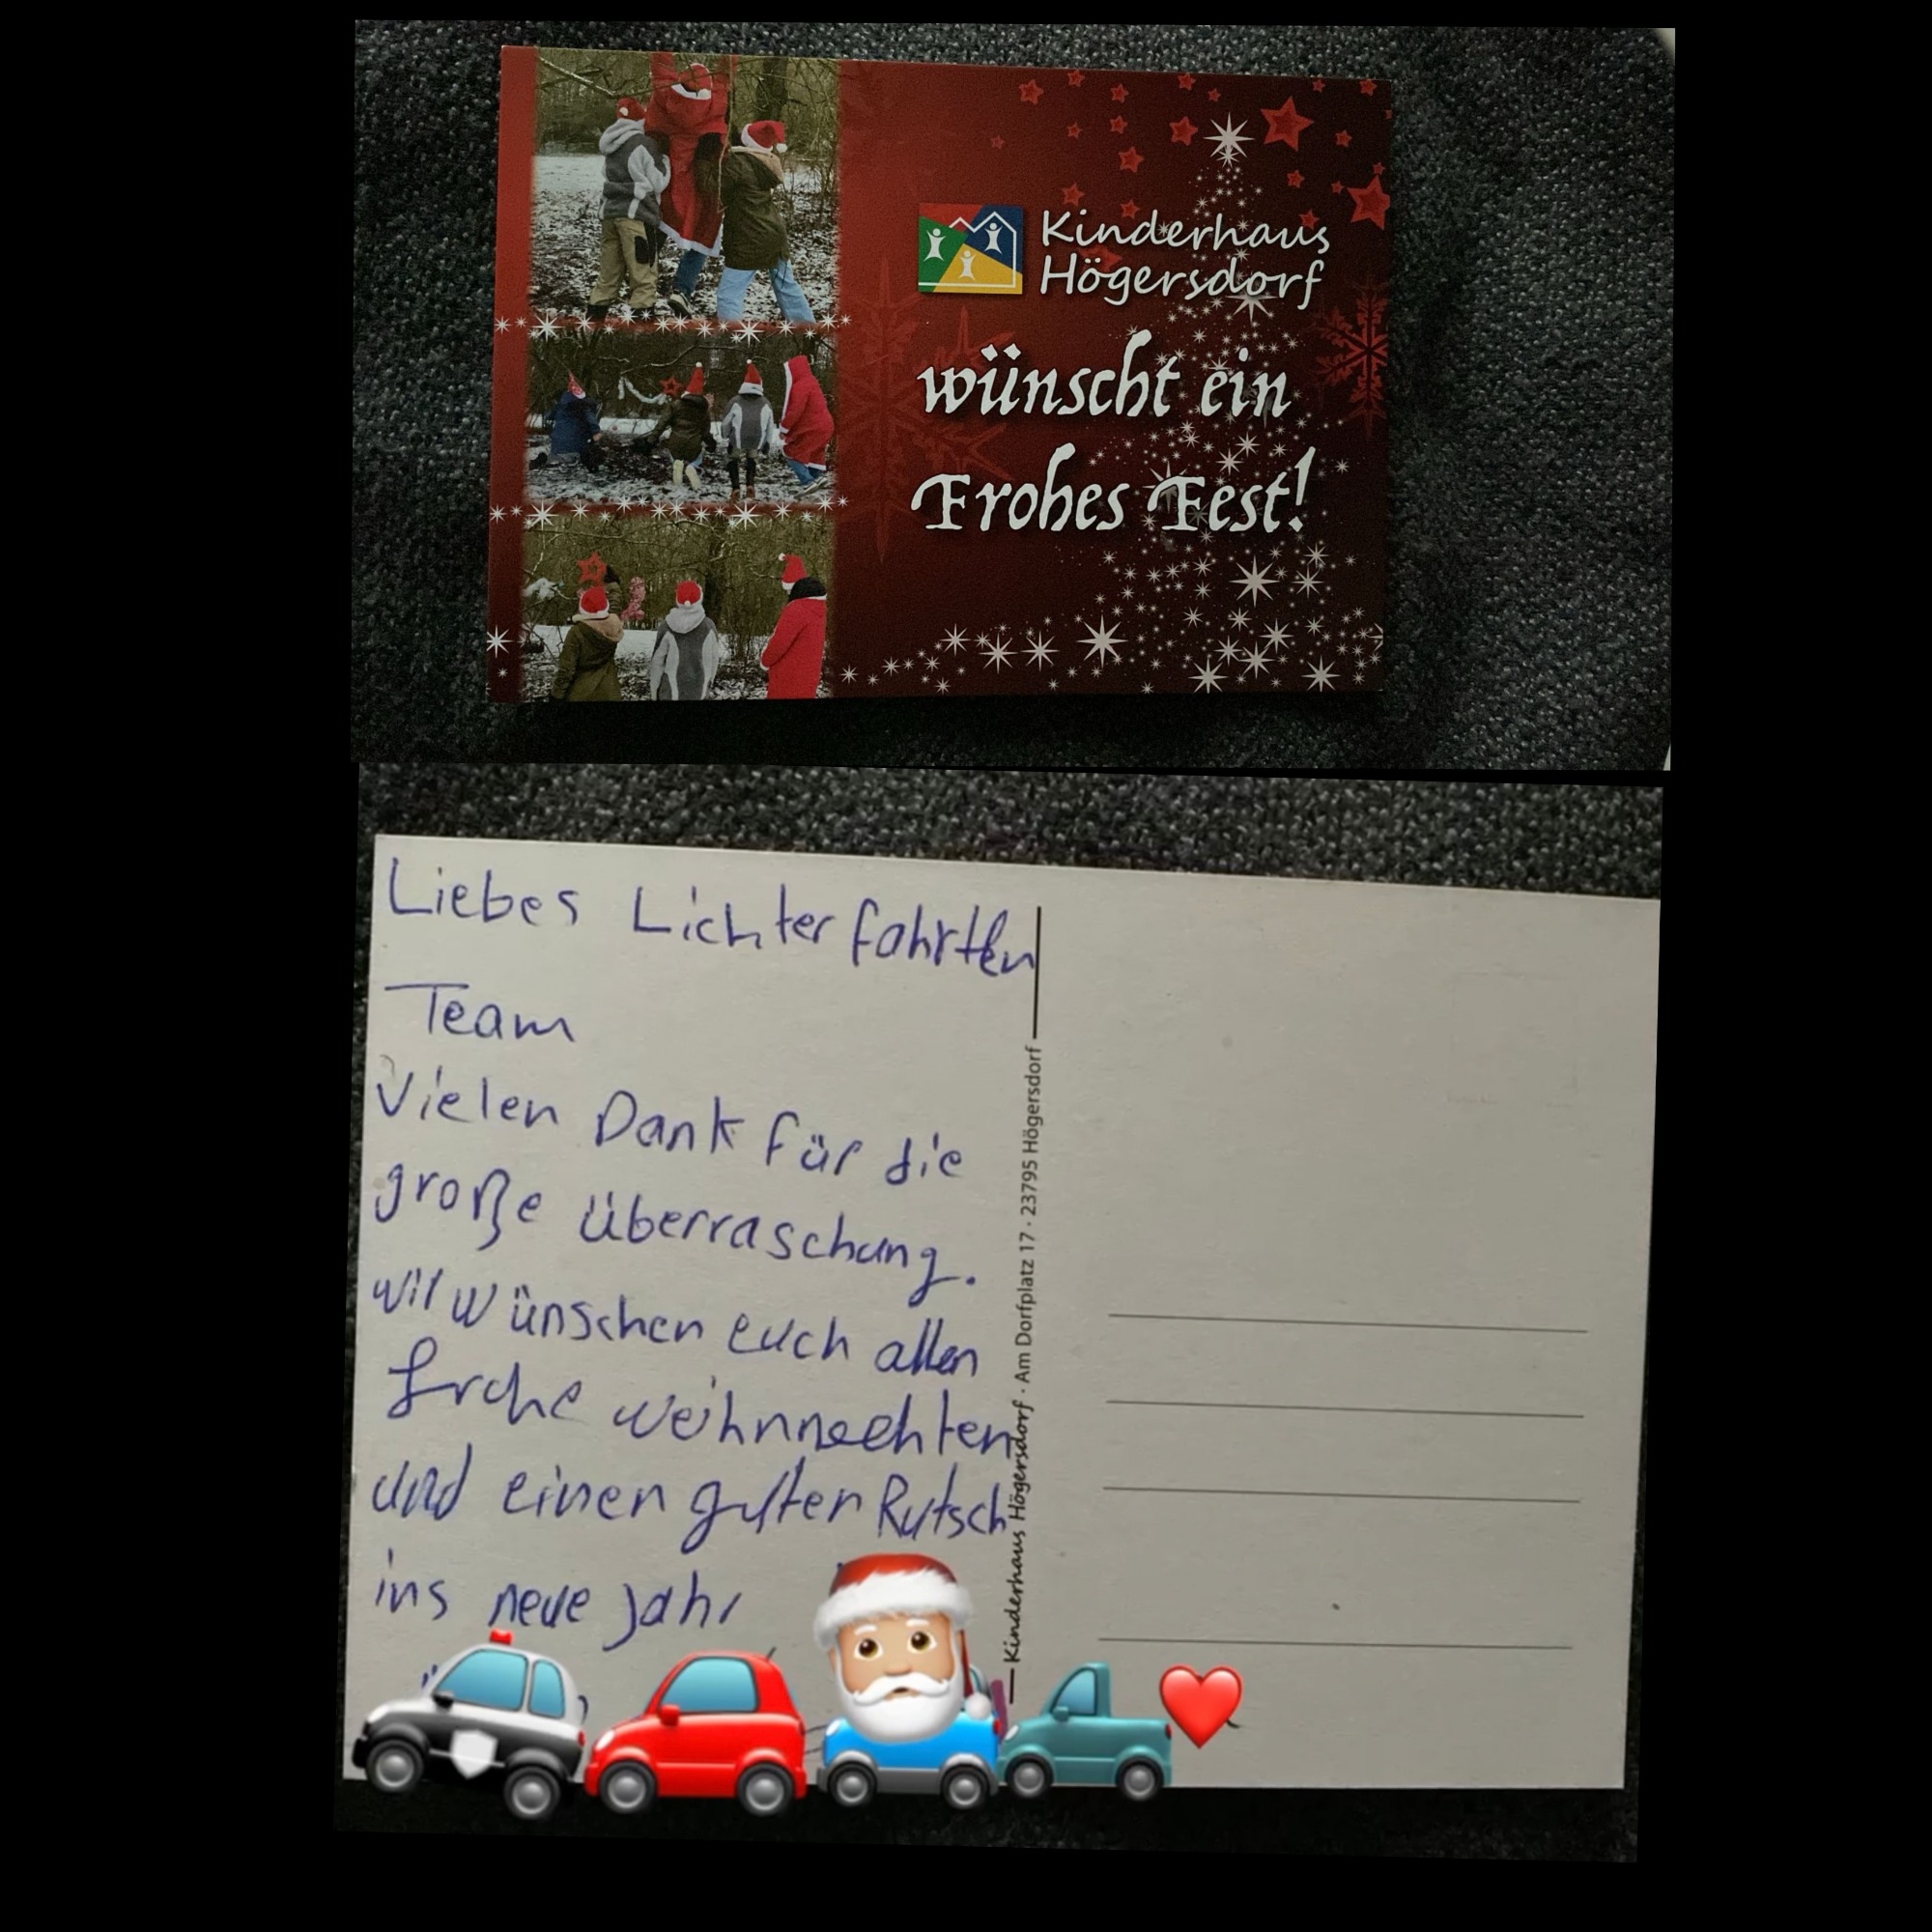 Kinderhaus
Högersdorf
wünscht ein
Frohes Fest!
Liebes Lichterfahrten
Team
Vielen Dank für die
große überraschung.
wir wünschen euch allen
frohe weihnnachten
und einen guten Rutsch
ins neue Jahr
Kinderhaus Högersdorf · Am Dorfplatz 17 · 23795 Högersdorf